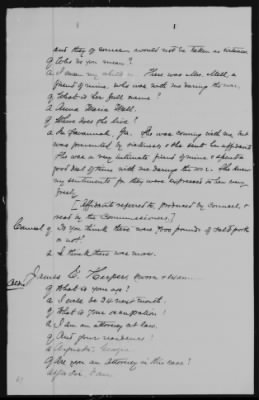 and they of course would not be taken as evidence
q Who do you mean?
a I mean my child. There was Mrs. Wall, a
friend of mine, who was with me during the war.
q What is her full name?
a Anna Maria Wall.
q Where does she live?
a In Savannah, Ga. She was coming with me, but
was prevented by sickness & she sent her affidavit
She was a very intimate friend of mine & spent a
good deal of time with me during the war. She knew
my sentiments for they were expressed to her very
freely.
[Affidavit referred to, produced by counsel, &
read by the Commissioners.]
Counsel q Do you think there were 7000 pounds of salt pork
or not?
a I think there was more.
James E. Harper sworn & exam.
q What is your age?
a I will be 34 next month.
q What is your occupation?
a I am an attorney at law.
q And your residence?
a Augusta Georgia
q Are you an attorney in this case?